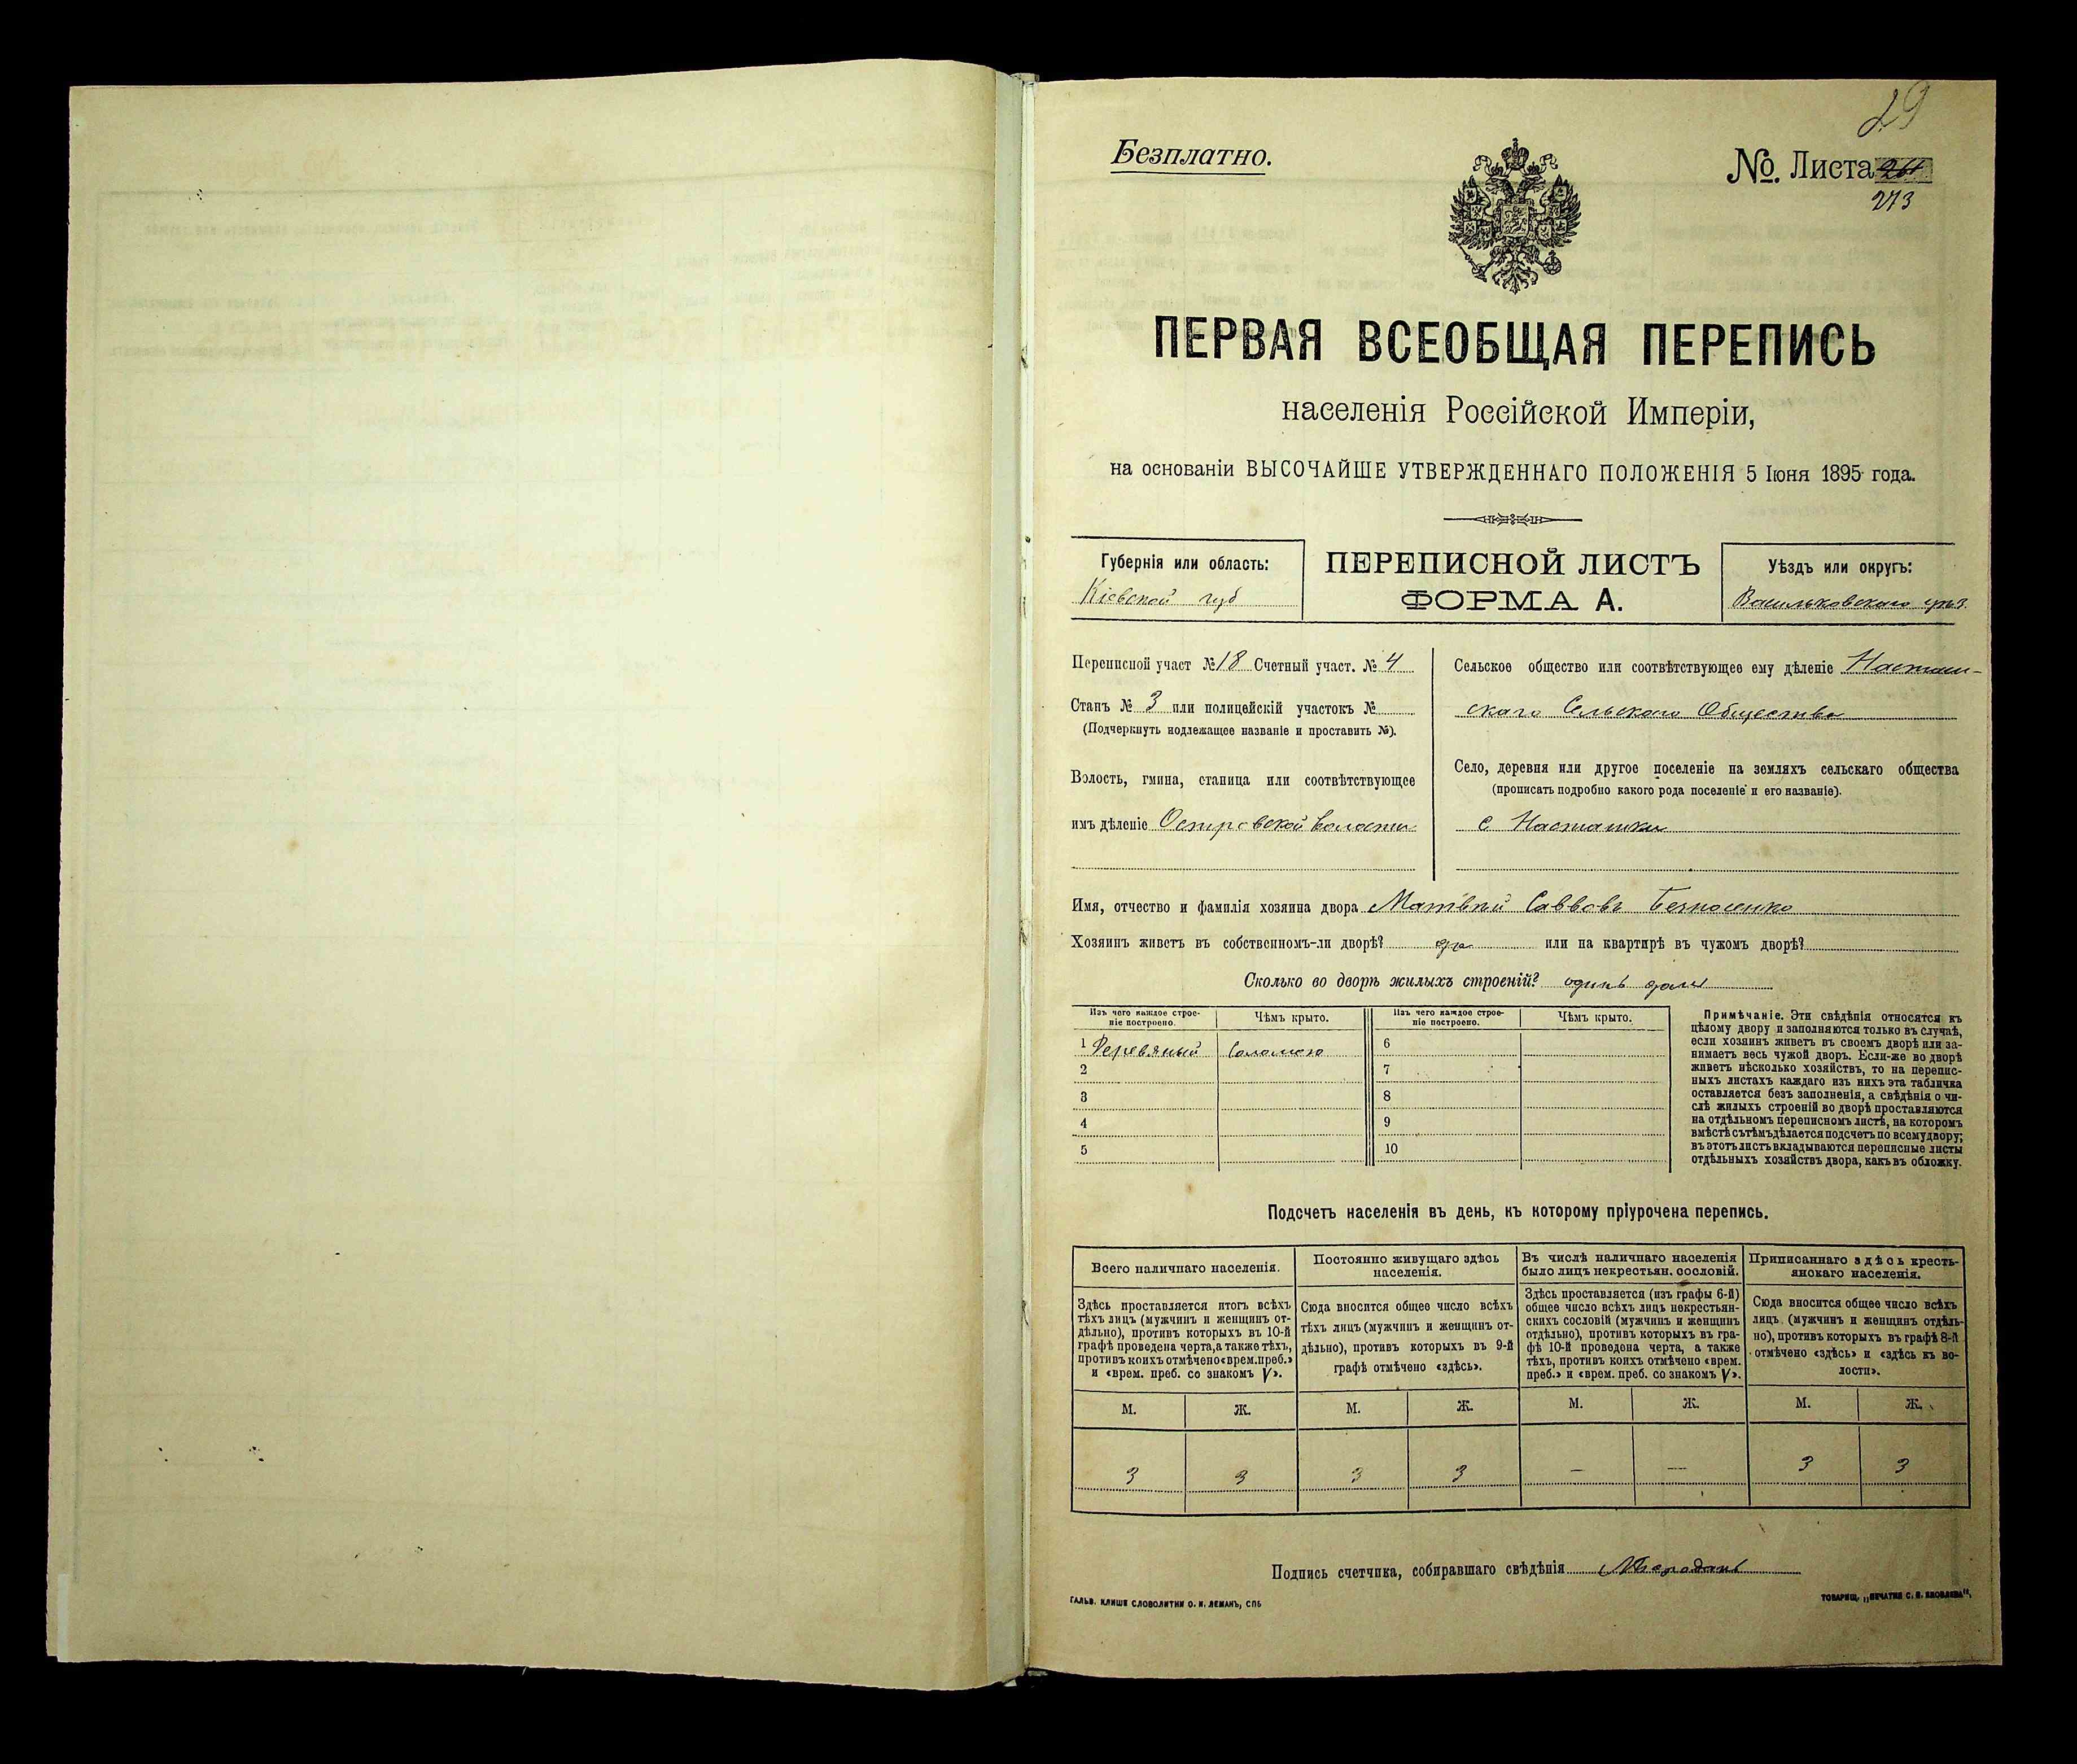 29
Безплатно.
№. Листа
273
ПЕРВАЯ ВСЕОБЩАЯ ПЕРЕПИСЬ
населенія Россійской Имперіи,
на основаніи ВЫСОЧАЙШЕ УТВЕРЖДЕННАГО ПОЛОЖЕНІЯ 5 Іюня 1895 года.
Губернія или область:
Кіевской губ
ПЕРЕПИСНОЙ ЛИСТЪ
ФОРМА А.
Уѣздъ или округъ:
Васильковскаго уѣз.
Переписной участ №18 Счетный участ. № 4
Станъ № 3 или полицейскій участокъ №
(Подчеркнуть подлежащее названіе и проставить №).
Волость, гмина, станица или соотвѣтствующее
имъ дѣленіе Островской волости
Сельское общество или соотвѣтствующее ему дѣленіе Насташ-
скаго Сельскаго Общества
Село, деревня или другое поселеніе на земляхъ сельскаго общества
(прописать подробно какого рода поселеніе и его названіе).
с Насташки
Имя, отчество и фамилія хозяина двора Матвѣй Саввовъ
Хозяинъ живетъ въ собственномъ-ли дворѣ? да или на квартирѣ въ чужомъ дворѣ?
Сколько во дворѣ жилыхъ строеній? одинъ домъ
Изъ чего каждое строе-
ніе построено.
Чѣмъ крыто.
Изъ чего каждое строе-
ніе построено.
Чѣмъ крыто.
1 Деревяный Соломою 6
2 7
3 8
4 9
5 10
Примѣчаніе. Эти свѣдѣнія относятся къ
цѣлому двору и заполняются только въ случаѣ,
если хозяинъ живетъ въ своемъ дворѣ или за-
нимаетъ весь чужой дворъ. Если-же во дворѣ
живетъ нѣсколько хозяйствъ, то на перепис-
ныхъ листахъ каждаго изъ нихъ эта табличка
оставляется безъ заполненія, а свѣдѣнія о чи-
слѣ жилыхъ строеній во дворѣ проставляются
на отдѣльномъ переписномъ листѣ, на которомъ
вмѣстѣ съ тѣмъ дѣлается подсчетъ по всему двору;
въ этотъ листъ вкладываются переписные листы
отдѣльныхъ хозяйствъ двора, какъ въ обложку.
Подсчетъ населенія въ день, къ которому пріурочена перепись.
Всего наличнаго населенія.
Постоянно живущаго здѣсь
населенія.
Въ числѣ наличнаго населенія
было лицъ некрестьян. сословій.
Приписаннаго здѣсь кресть-
янскаго населенія.
Здѣсь проставляется итогъ всѣхъ
тѣхъ лицъ (мужчинъ и женщинъ от-
дѣльно), противъ которыхъ въ 10-й
графѣ проведена черта, а также тѣхъ,
противъ коихъ отмѣчено «врем. преб.»
и «врем. преб. со знакомъ V».
Сюда вносится общее число всѣхъ
тѣхъ лицъ (мужчинъ и женщинъ от-
дѣльно), противъ которыхъ въ 9-й
графѣ отмѣчено «здѣсь».
Здѣсь проставляется (изъ графы 6-й)
общее число всѣхъ лицъ некрестьян-
скихъ сословій (мужчинъ и женщинъ
отдѣльно), противъ которыхъ въ гра-
фѣ 10-й проведена черта, а также
тѣхъ, противъ коихъ отмѣчено «врем.
преб.» и «врем. преб. со знакомъ V».
Сюда вносится общее число всѣхъ
лицъ (мужчинъ и женщинъ отдѣль-
но), противъ которыхъ въ графѣ 8-й
отмѣчено «здѣсь» и «здѣсь къ во-
лости».
М. Ж. М. Ж. М. Ж. М. Ж.
3 3 3 3 — — 3 3
Подпись счетчика, собиравшаго свѣдѣнія
ГАЛЬВ. КЛИШЕ СЛОВОЛИТНИ О. И. ЛЕМАНЪ, СПБ
ТОВАРИЩ. „ПЕЧАТНЯ С. П. ЯКОВЛЕВА“.